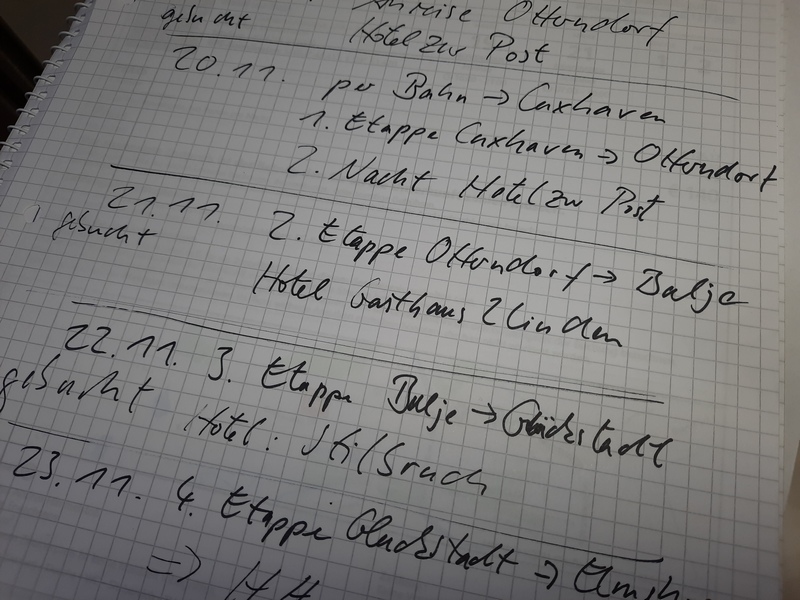 Anreise Otterndorf
gebucht Hotel zur Post
20.11. per Bahn → Cuxhaven
1. Etappe Cuxhaven → Otterndorf
2. Nacht Hotel zur Post
21.11. 2. Etappe Otterndorf → Balje
gebucht Hotel Gasthaus 2 Linden
22.11. 3. Etappe Balje → Glückstadt
gebucht Hotel: Stilbruch
23.11. 4. Etappe Glückstadt → Elmsh
=> HH